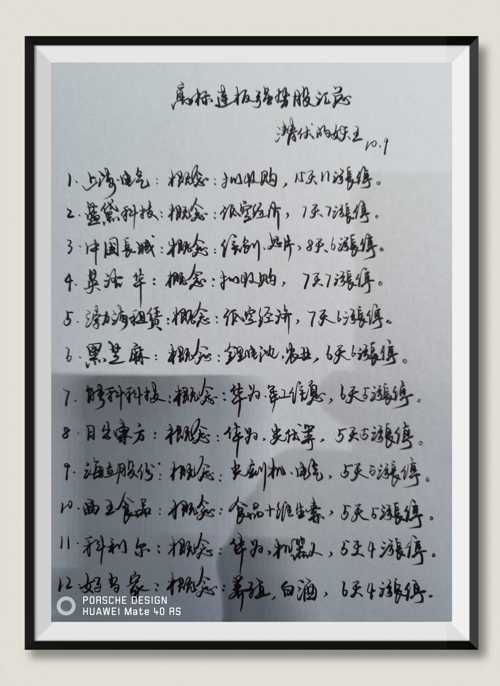 高标连板强势股汇总
潜伏的妖王
10.9
1. 上海电气：概念：扣收购，15天11涨停。
2. 蓝黛科技：概念：低空经济，7天7涨停。
3. 中国长城：概念：信创.芯片，8天6涨停。
4. 华：概念：扣收购，7天7涨停。
5. 渤海租赁：概念：低空经济，7天6涨停。
6. 黑芝麻：概念：锂电池.农业，6天6涨停。
7. 科科技：概念：华为.军工信息，6天5涨停。
8. 日出东方：概念：华为.光伏，5天5涨停。
9. 海立股份：概念：光刻机.电气，5天5涨停。
10. 西王食品：概念：食品+维生素，5天5涨停。
11. 科利尔：概念：华为.机器人，5天4涨停。
12. 好当家：概念：养殖.白酒，6天4涨停.
PORSCHE DESIGN
HUAWEI Mate 40 RS